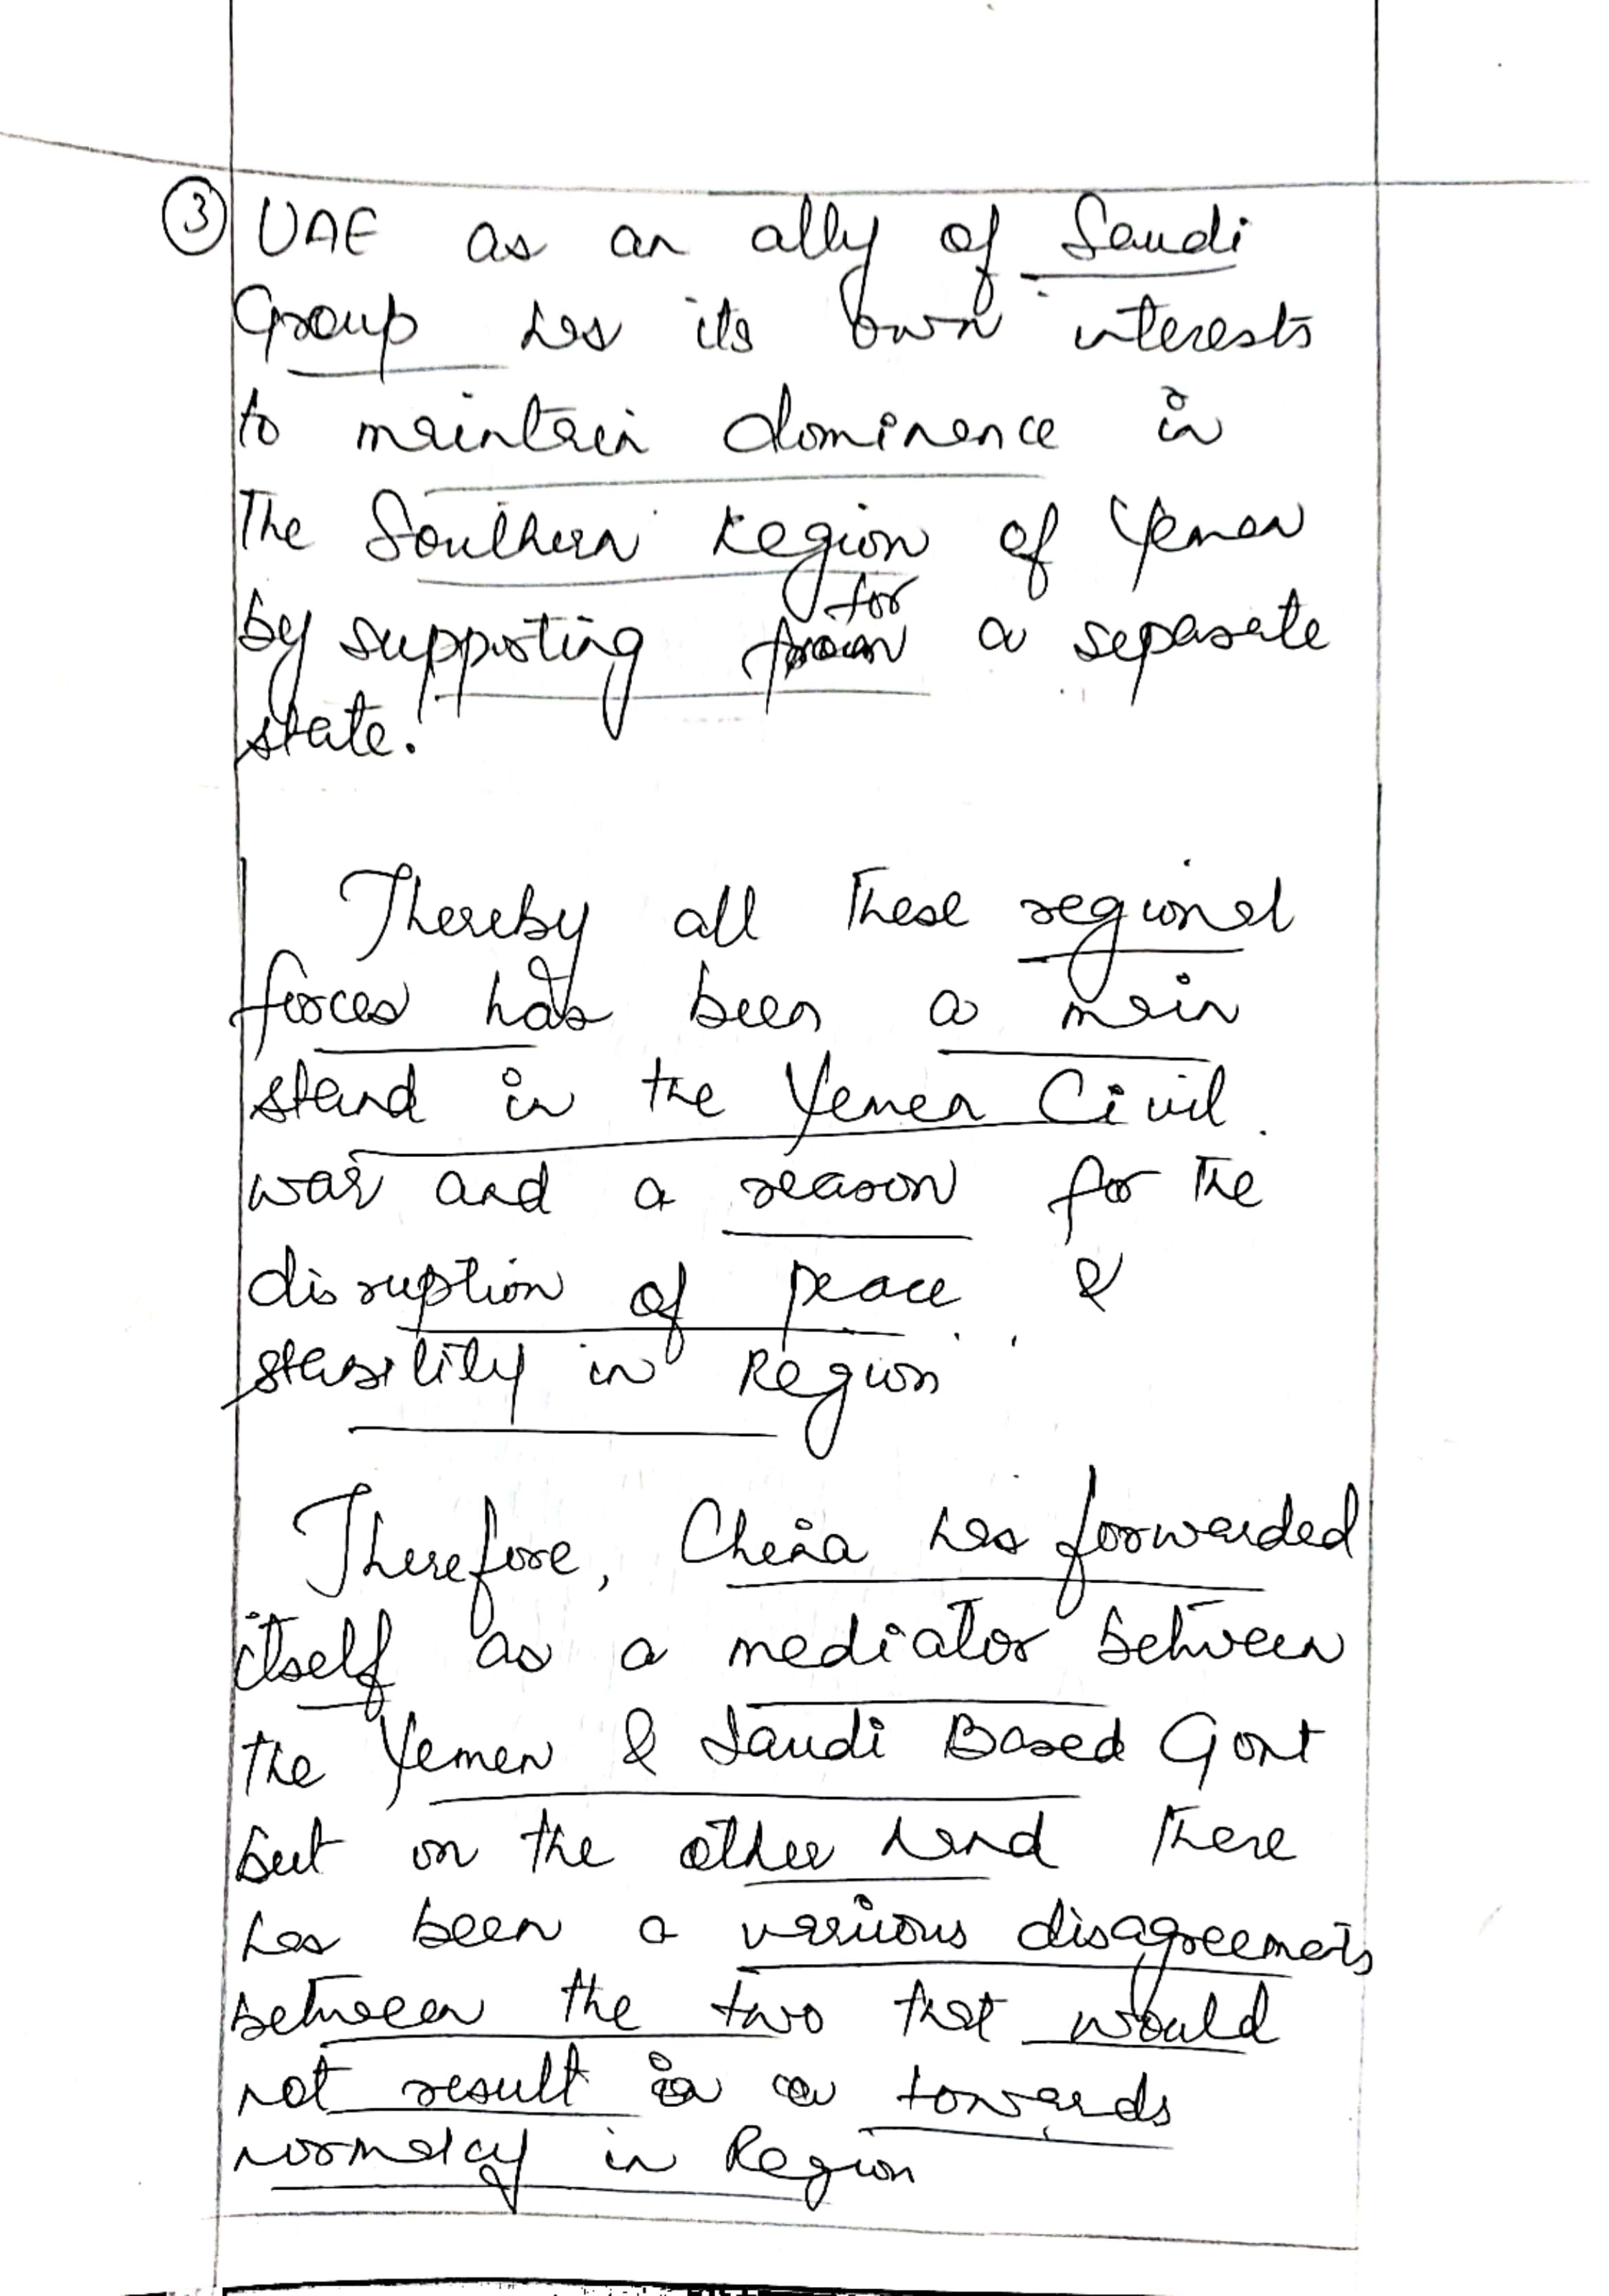 ③ UAE as an ally of Saudi
Group has its own interests
to maintain dominence in
the Southern Region of Yemen
for
by supporting a separate
state.
Thereby all these regional
forces has been a main
stand in the Yemen Civil
war and a reason for the
disruption of peace &
stability in Region
Therefore, China has forwarded
itself as a mediator between
the Yemen & Saudi Based Govt
but on the other hand there
has been a various disagreements
between the two that would
not result in a towards
normalcy in Region